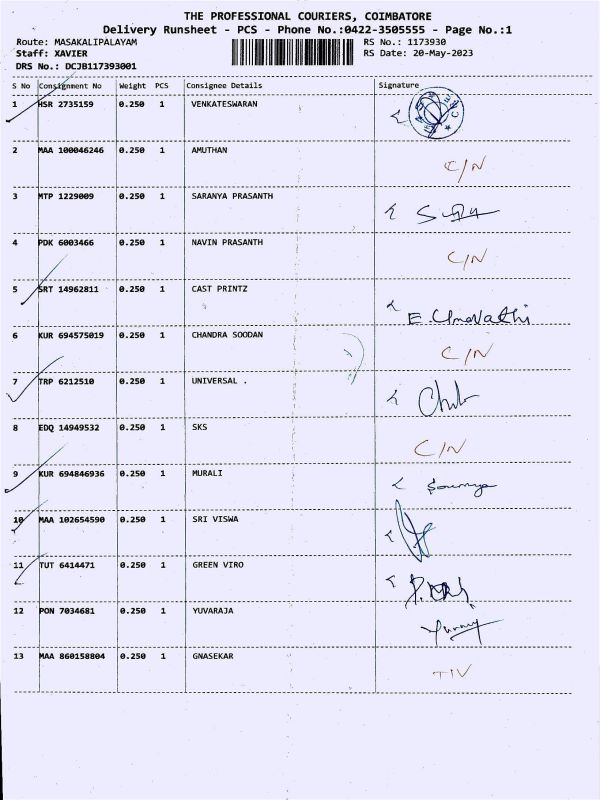 THE PROFESSIONAL COURIERS, COIMBATORE
Delivery Runsheet - PCS - Phone No.:0422-3505555 - Page No.:1
Route: MASAKALIPALAYAM
RS No.: 1173930
Staff: XAVIER
RS Date: 20-May-2023
DRS No.: DCJB117393001
S No Consignment No Weight PCS Consignee Details Signature
1 HSR 2735159 0.250 1 VENKATESWARAN
2 MAA 100046246 0.250 1 AMUTHAN C/N
3 MTP 1229009 0.250 1 SARANYA PRASANTH
4 PDK 6003466 0.250 1 NAVIN PRASANTH C/N
5 SRT 14962811 0.250 1 CAST PRINTZ E. Umavathi
6 KUR 694575019 0.250 1 CHANDRA SOODAN C/N
7 TRP 6212510 0.250 1 UNIVERSAL .
8 EDQ 14949532 0.250 1 SKS C/N
9 KUR 694846936 0.250 1 MURALI Sowmya
10 MAA 102654590 0.250 1 SRI VISWA
11 TUT 6414471 0.250 1 GREEN VIRO
12 PON 7034681 0.250 1 YUVARAJA
13 MAA 860158804 0.250 1 GNASEKAR